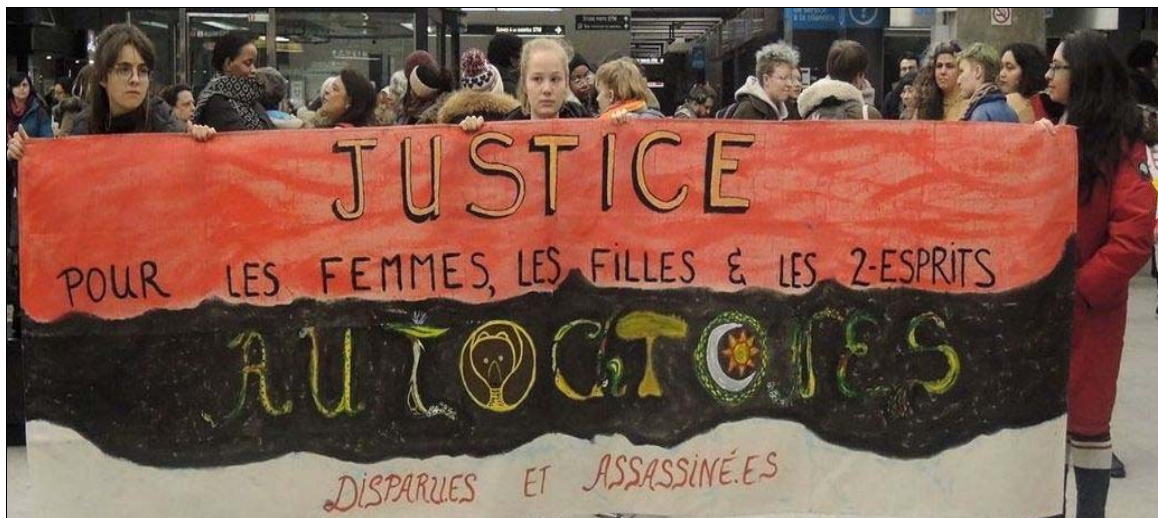 JUSTICE
POUR LES FEMMES, LES FILLES & LES 2-ESPRITS
AUTOChTONES
DISPARU.ES ET ASSASSINÉ.ES